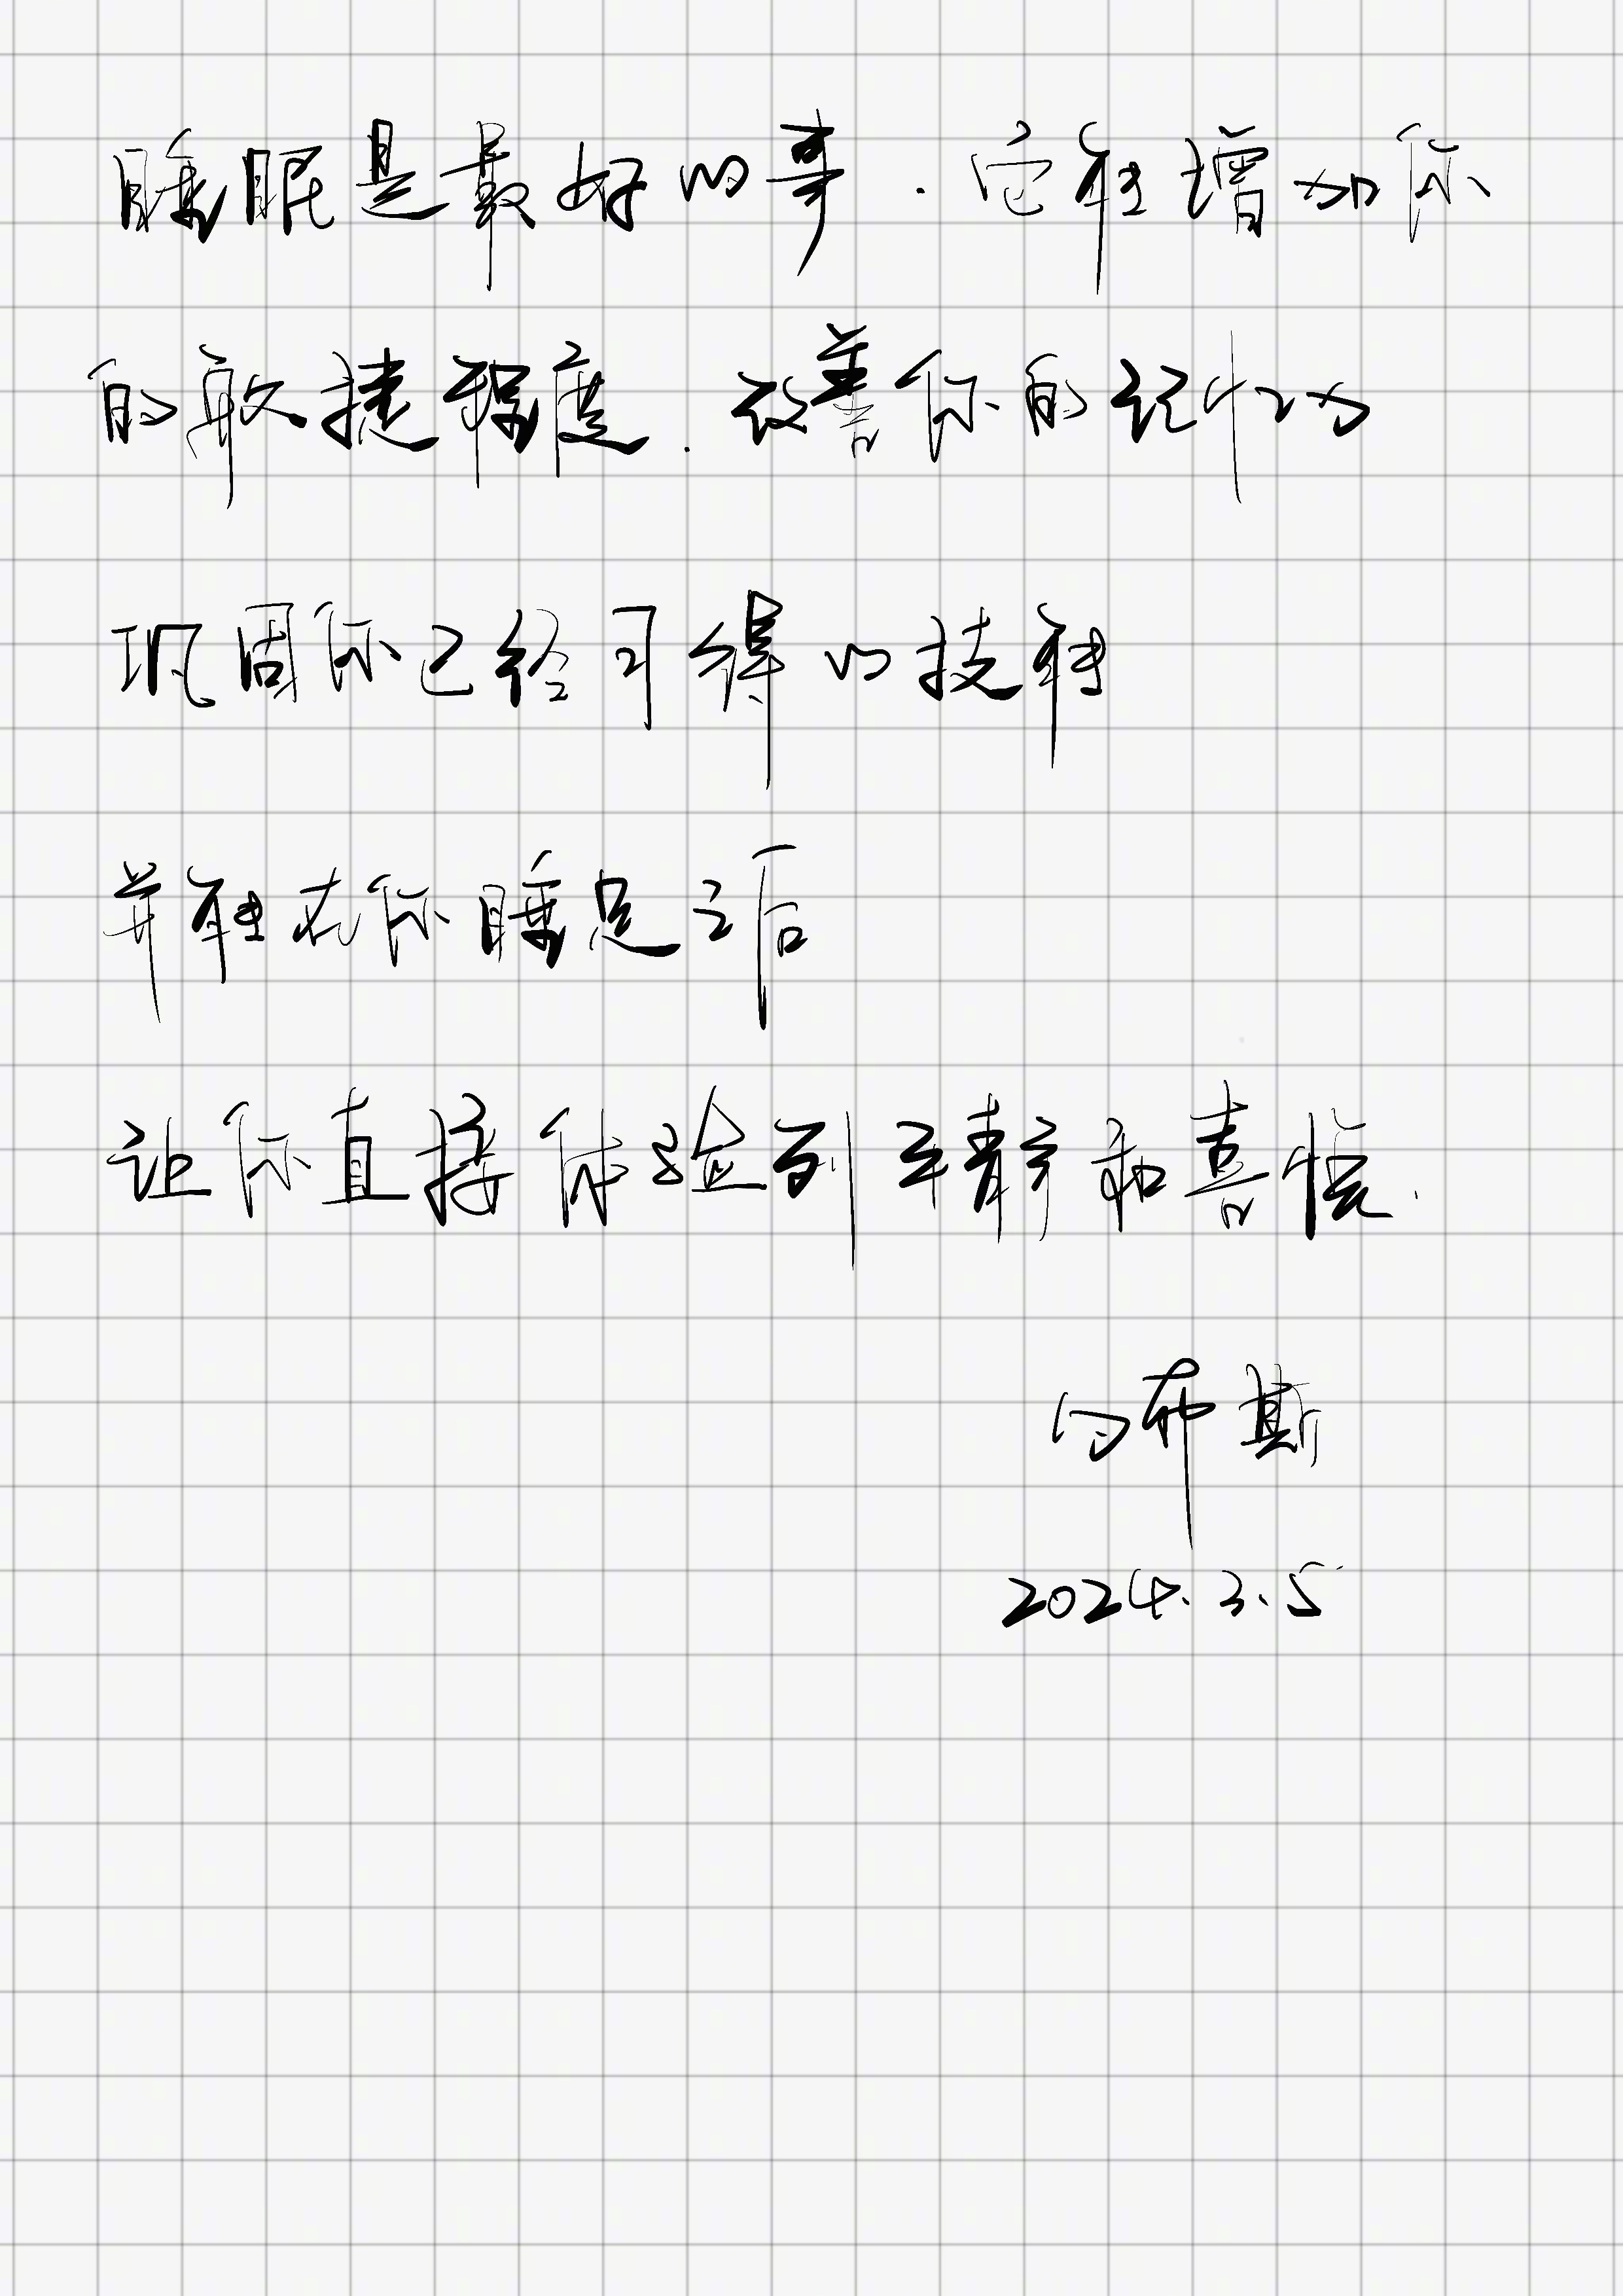 睡眠是最好的事.它能增加你
的敏捷程度.改善你的记忆力
巩固你已经习得的技能
并能在你睡足之后
让你直接体验到平静和喜悦.
白布斯
2024.3.5